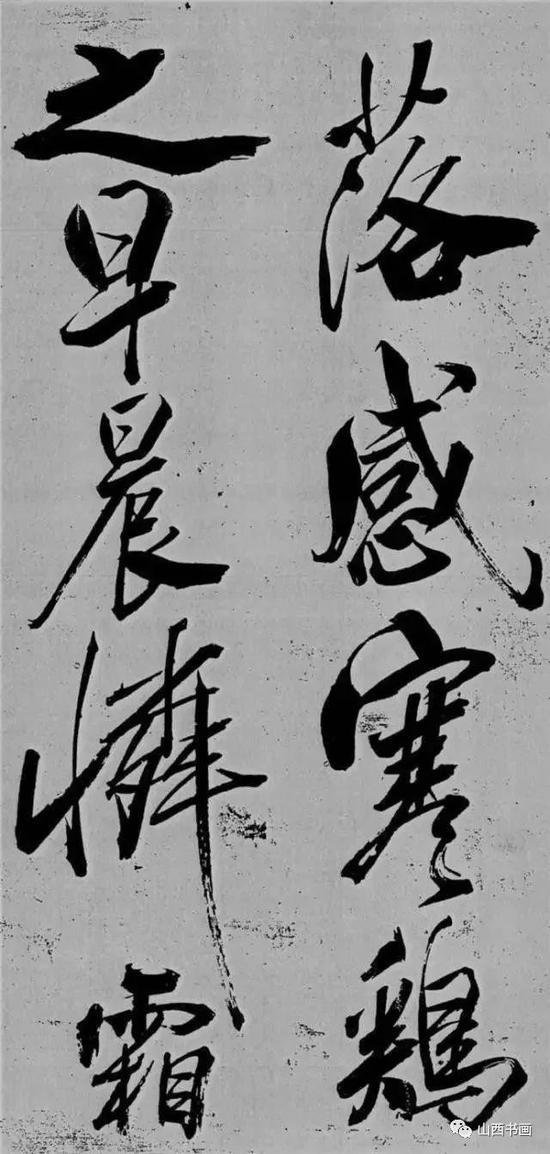 落感寒鷄
之早晨憐霜
山西书画